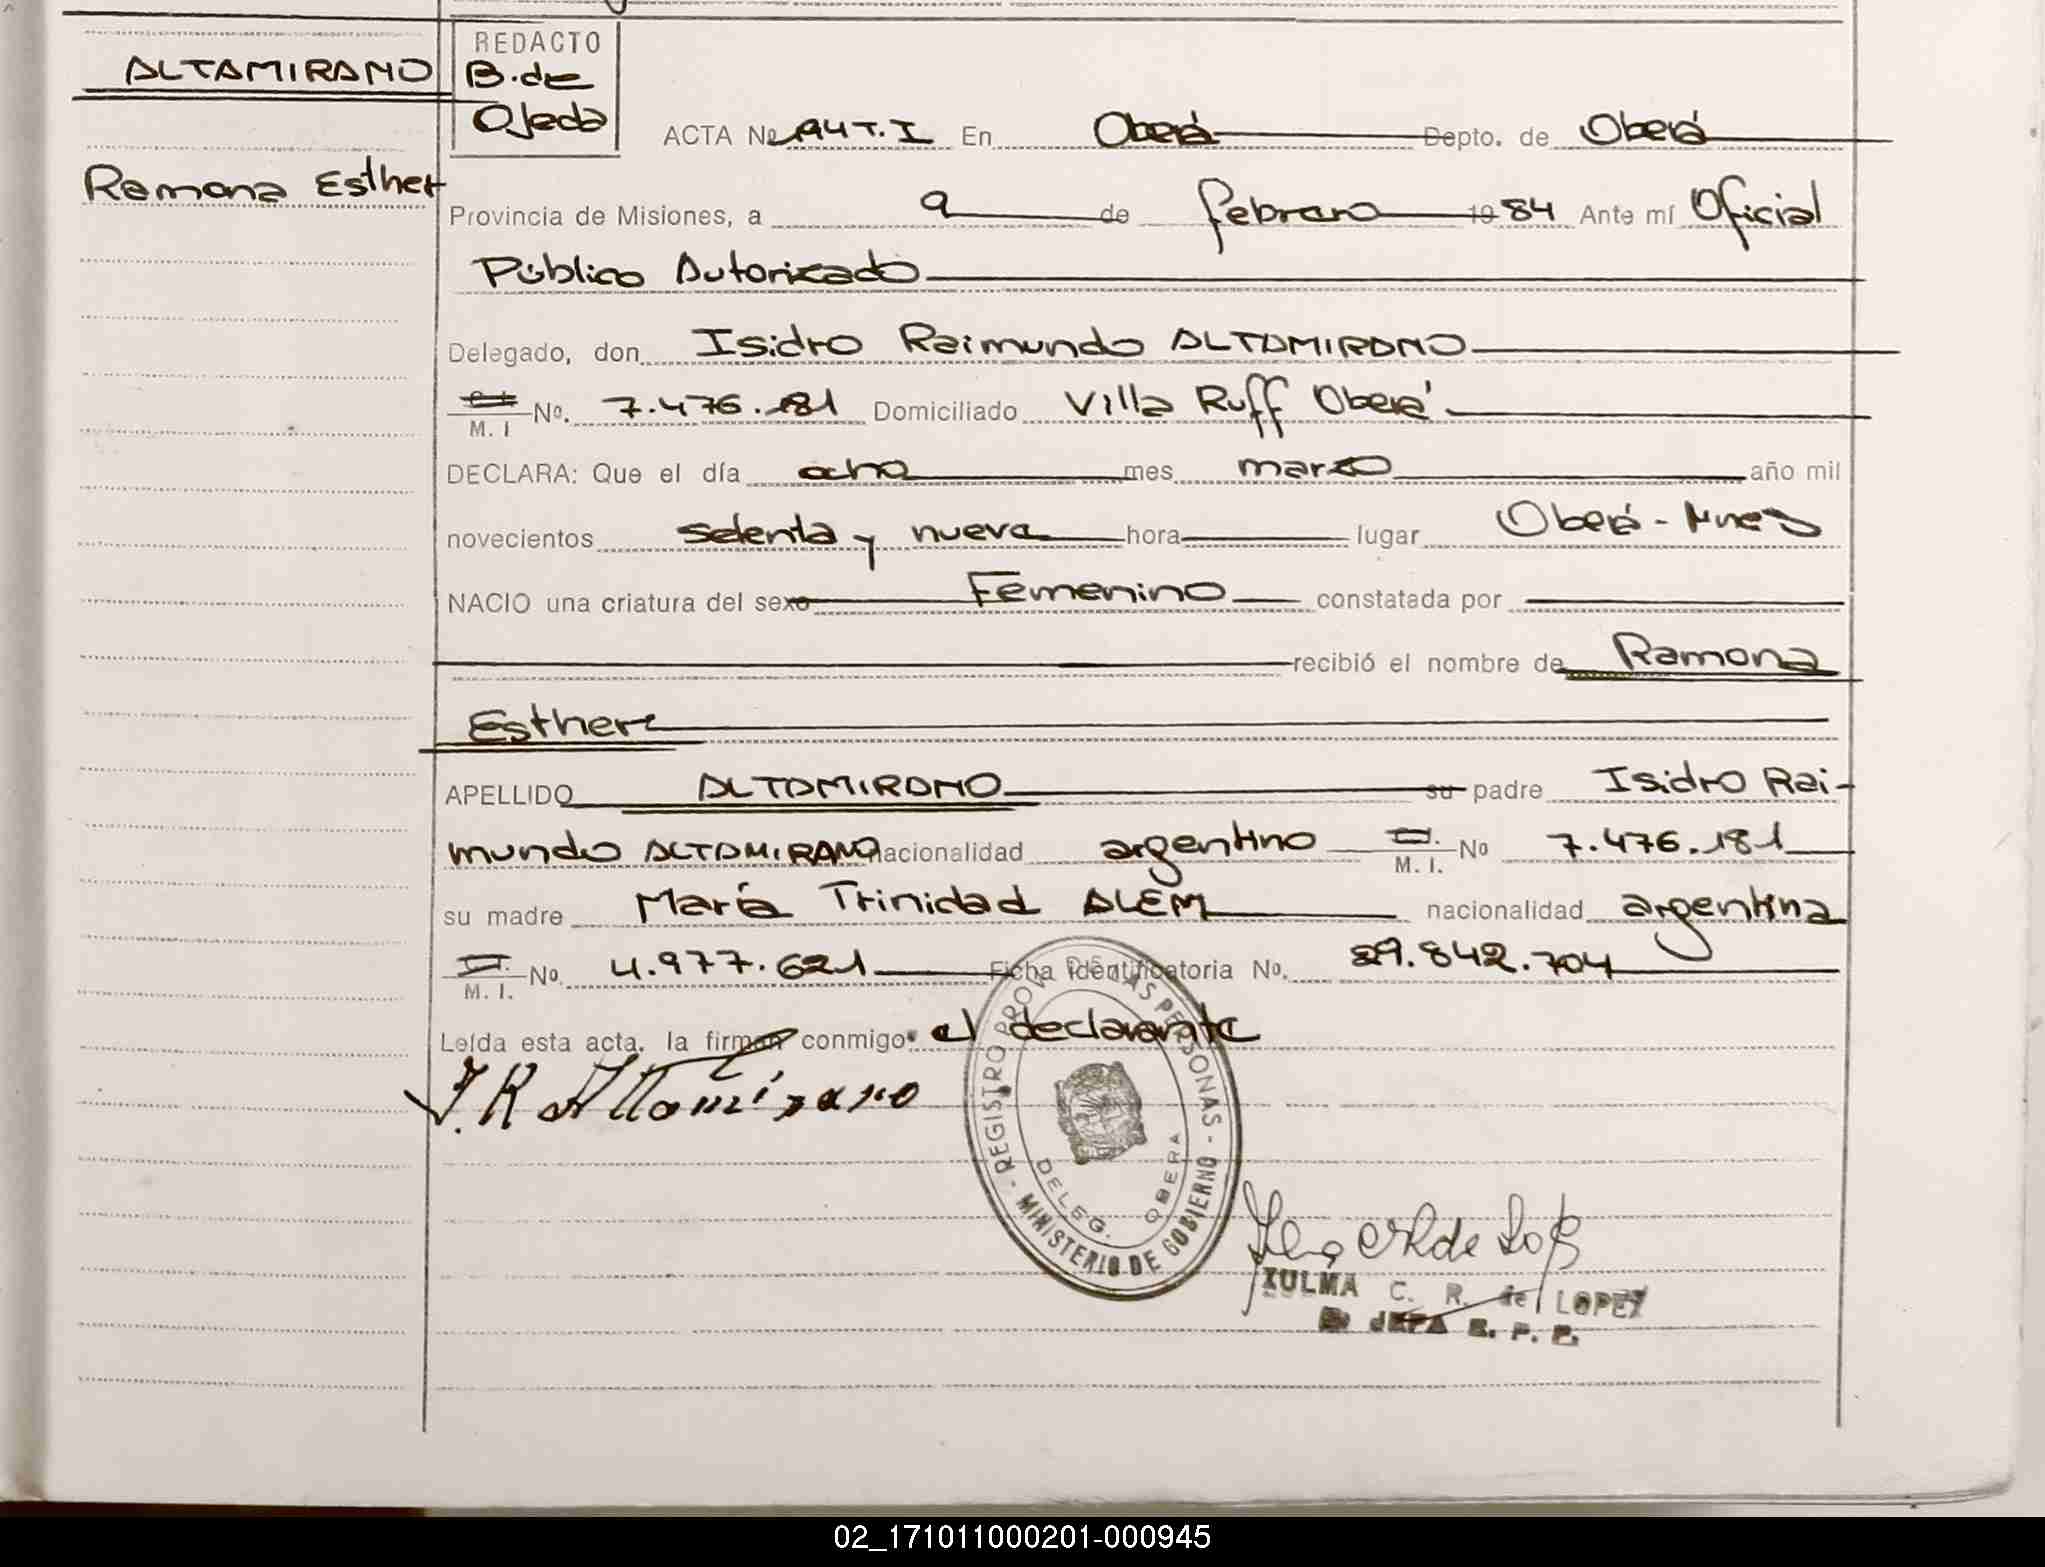 ALTAMIRANO
Ramona Esther
REDACTO
B. de
Ojeda
ACTA No 194 T. I En Oberá Depto. de Oberá
Provincia de Misiones, a 9 de febrero 1984 Ante mí Oficial
Público Autorizado
Delegado, don Isidro Raimundo ALTAMIRANO
M. I No. 7.476.181 Domiciliado Villa Ruff Oberá
DECLARA: Que el día ocho mes marzo año mil
novecientos setenta y nueve hora lugar Oberá - Mnes
NACIO una criatura del sexo Femenino constatada por
recibió el nombre de Ramona
Esther
APELLIDO ALTAMIRANO su padre Isidro Rai-
mundo ALTAMIRANO nacionalidad argentino M. I. No 7.476.181
su madre María Trinidad ALEM nacionalidad argentina
M. I. No. 4.977.621 Ficha Identificatoria No. 29.842.704
Leída esta acta, la firman conmigo: el declarante
I. R Altamirano
REGISTRO PROV. DE LAS PERSONAS - MINISTERIO DE GOBIERNO -
DELEG. OBERA
ZULMA C. R. de LOPEZ
JEFA R. P. P.
02_171011000201-000945